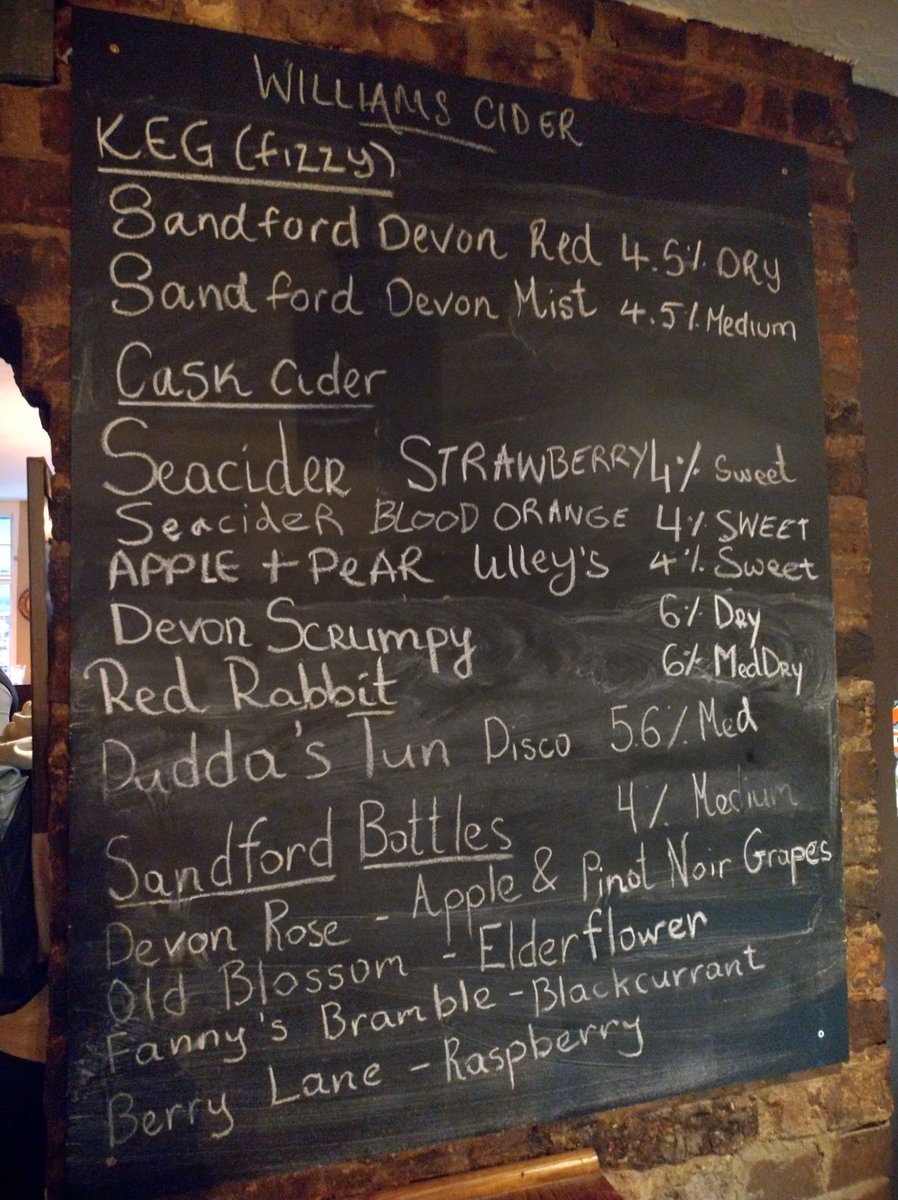 WILLIAMS CIDER
KEG (fizzy)
Sandford Devon Red 4.5% DRY
Sandford Devon Mist 4.5% Medium
Cask Cider
Seacider STRAWBERRY 4% Sweet
SeaciDER BLOOD ORANGE 4% SWEET
APPLE + PeAR Ulley's 4% Sweet
Devon Scrumpy 6% Dry
Red Rabbit 6% MedDry
Dudda's Tun Disco 5.6% Med
Sandford Bottles 4% Medium
Devon Rose - Apple & Pinot Noir Grapes
Old Blossom - Elderflower
Fanny's Bramble - Blackcurrant
Berry Lane - Raspberry